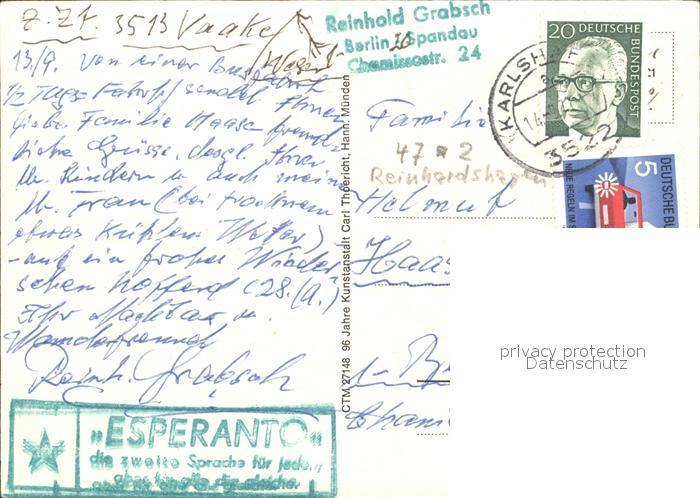 z. Zt. 3513 Vaake
(Weser)
Reinhold Grabsch
Berlin 20 Spandau
Chamissostr. 24
13/9. Von einer Bus
1/2 Tags-Fahrt sendet Ihnen
liebe Familie Haase
liebe Grüsse, desgl. Ihren
lb. Kindern u. auch meine
lb. Frau (bei trockenem
etwas kühlem Wetter)
- auf ein frohes Wieder
sehen hoffend (28.
Ihr Nachbar u.
Wanderfreund
Reinh. Grabsch
„ESPERANTO“
die zweite Sprache für jeden,
aber für alle die gleiche.
CTM 27148 96 Jahre Kunstanstalt Carl Thoericht, Hann. Münden
20 DEUTSCHE
BUNDESPOST
KARLSH
3522
5
DEUTSCHE BU
NEUE REGELN IM S
Familie
47 2
Reinhardshagen
Helmut
Haas
1-B
Chami
privacy protection
Datenschutz